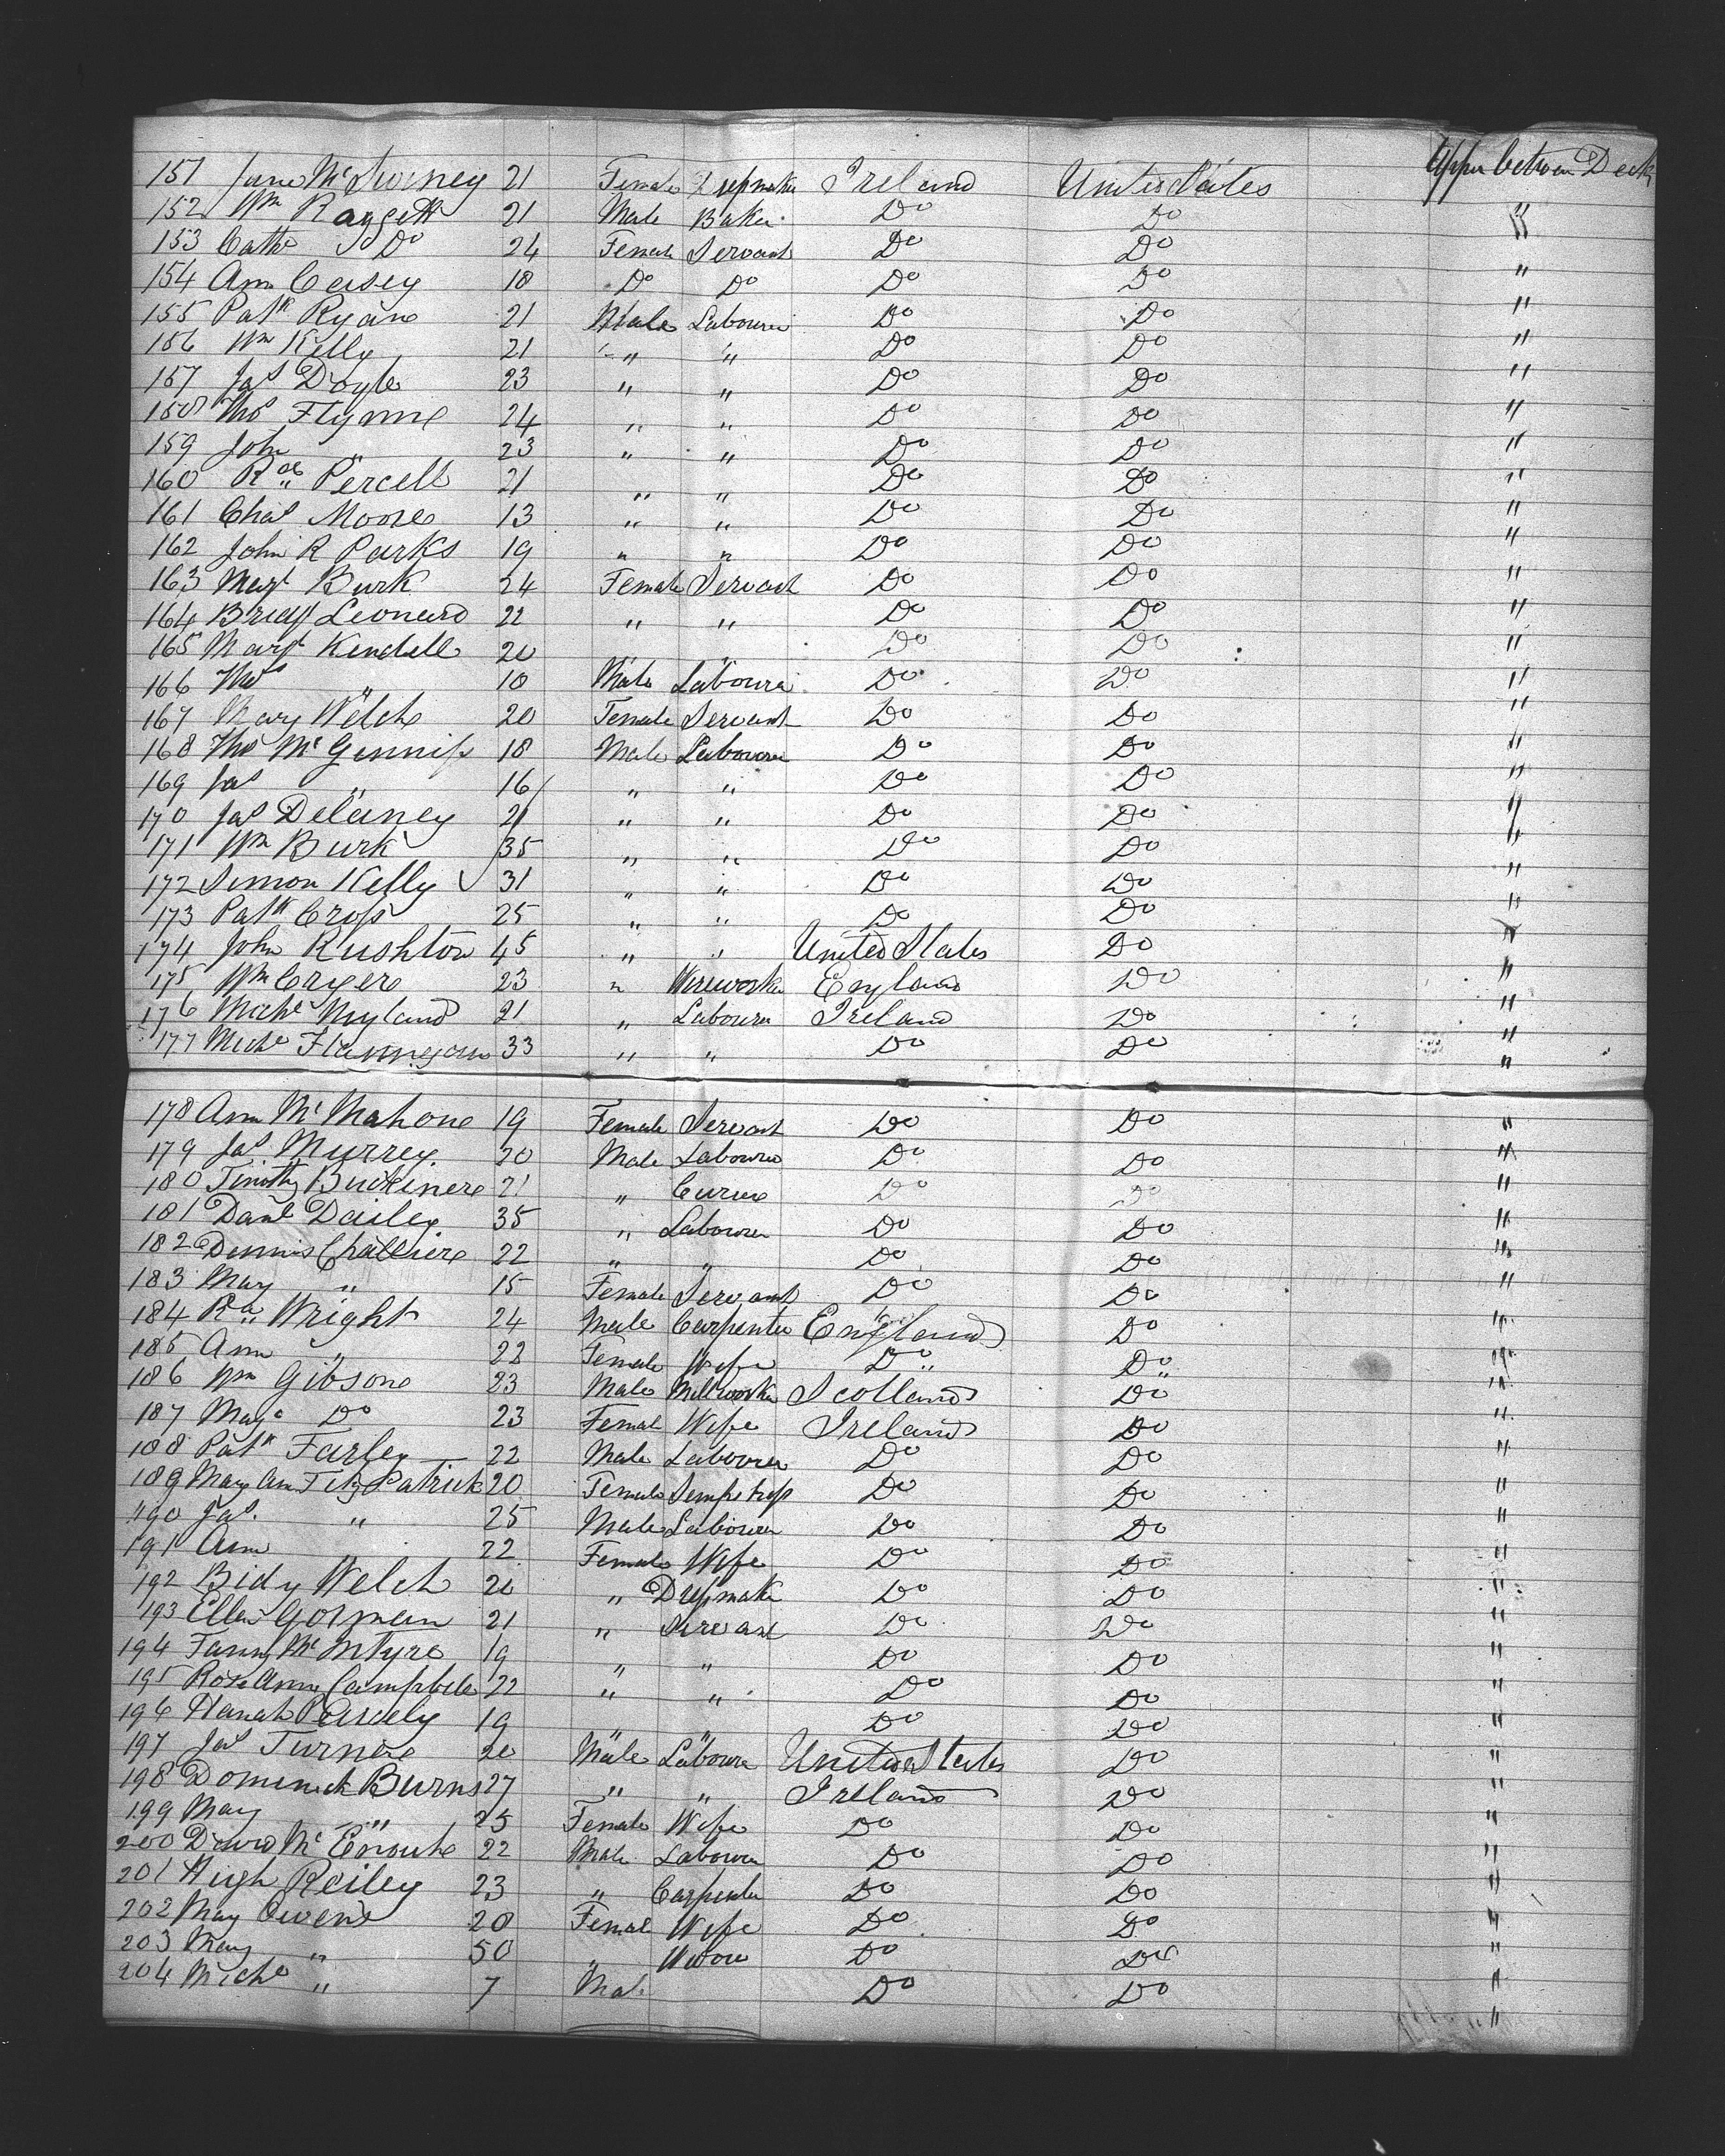 151 Jane McSwiney 21 Female Dressmaker Ireland United States Upper between Deck
152 Wm Raggett 21 Male Baker Do Do "
153 Cathe Do 24 Female Servant Do Do "
154 Ann Casey 18 Do Do Do Do "
155 Patk Ryan 21 Male Labourer Do Do "
156 Wm Kelly 21 " " Do Do "
157 Jas Doyle 23 " " Do Do "
158 Thos Flynne 24 " " Do Do "
159 John " 23 " " Do Do "
160 Percell 21 " " Do Do "
161 Chas Moore 13 " " Do Do "
162 John R Parks 19 " " Do Do "
163 Margt Burk 24 Female Servant Do Do "
164 Bridgt Leonard 22 " " Do Do "
165 Margt Kendell 20 " " Do Do "
166 Thos " 18 Male Labourer Do Do "
167 Mary Welch 20 Female Servant Do Do "
168 Thos McGenniss 18 Male Labourer Do Do "
169 Jas " 16 " " Do Do "
170 Jas Delaney 21 " " Do Do "
171 Wm Burk 35 " " Do Do "
172 Simon Kelly 31 " " Do Do "
173 Patk Cross 25 " " Do Do "
174 John Rushton 45 " " United States Do "
175 Wm Cryere 23 " Wireworker England Do "
176 Michl Nyland 21 " Labourer Ireland Do "
177 Michl Flannegan 33 " " Do Do "
178 Ann McMahone 19 Female Servant Do Do "
179 Jas Murrey 20 Male Labourer Do Do "
180 Timothy 21 " Do Do "
181 Danl Dailey 35 " Labourer Do Do "
182 Dennis 22 " " Do Do "
183 Mary " 15 Female Servant Do Do "
184 Wright 24 Male Carpenter England Do "
185 Ann " 22 Female Wife Do Do "
186 Wm Gibsone 23 Male Millworker Scotland Do "
187 Do 23 Female Wife Ireland Do "
188 Patk Farley 22 Male Labourer Do Do "
189 Mary Ann FitzPatrick 20 Female Sempstress Do Do "
190 Jas. " 25 Male Labourer Do Do "
191 Ann 22 Female Wife Do Do "
192 Bidy Welch 20 " Dressmaker Do Do "
193 Ellen Gorman 21 " Servant Do Do "
194 Fanny McIntyre 19 " " Do Do "
195 Rose Anne Campbele 22 " " Do Do "
196 Hanah 19 " " Do Do "
197 Jas Turnere 20 Male Labourer United States Do "
198 Dominick Burns 27 " " Ireland Do "
199 Mary " 25 Female Wife Do Do "
200 David 22 Male Labourer Do Do "
201 Hugh Reiley 23 " Carpenter Do Do "
202 Mary Owens 20 Female Wife Do Do "
203 Mary " 50 " Widow Do Do "
204 Michl " 7 Male Do Do "